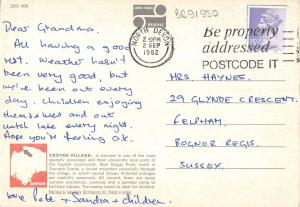 2DC 408
BR91950
NORTH DEVON
2 30PM
2 SEP
1982
Be properly
addressed
POSTCODE IT
Dear Grandma,
All having a good
rest. Weather hasn't
been very good, but
we've been out every
day. Children enjoying
themselves and out
until late every night.
Hope you're feeling O.K.
MRS. HAYNES,
29 GLYNDE CRESCENT,
FELPHAM,
BOGNOR REGIS,
SUSSEX.
CROYDE VILLAGE:
DEVON
Love Pete + Sandra + children